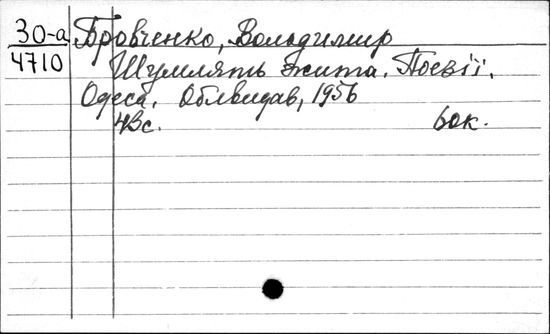 30-а Бровченко, Володимир
4710 Шумлять жита. Поезії.
Одеса, Облвидав, 1956
43с. 60к.